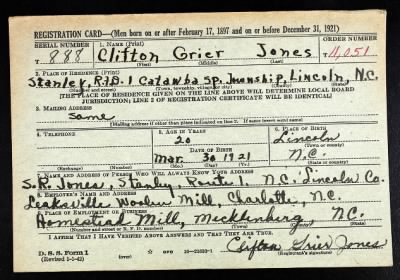 REGISTRATION CARD—(Men born on or after February 17, 1897 and on or before December 31, 1921)
SERIAL NUMBER 1. NAME (Print) ORDER NUMBER
T 888 Clifton Grier Jones 11,051
(First) (Middle) (Last)
2. PLACE OF RESIDENCE (Print)
Stanley, R.F.D.-1 Catawba Sp. Township, Lincoln, N.C.
(Number and street) (Town, township, village or city) (County) (State)
[THE PLACE OF RESIDENCE GIVEN ON THE LINE ABOVE WILL DETERMINE LOCAL BOARD
JURISDICTION; LINE 2 OF REGISTRATION CERTIFICATE WILL BE IDENTICAL]
3. MAILING ADDRESS
Same
[Mailing address if other than place indicated on line 2. If same insert word same]
4. TELEPHONE 5. AGE IN YEARS 6. PLACE OF BIRTH
20 Lincoln
DATE OF BIRTH (Town or county)
Mar. 30 1921 N.C.
(Mo.) (Day) (Yr.) (State or country)
7. NAME AND ADDRESS OF PERSON WHO WILL ALWAYS KNOW YOUR ADDRESS
S.R. Jones, Stanley, Route 1, N.C. Lincoln Co.
8. EMPLOYER'S NAME AND ADDRESS
Leaksville Woolen Mill, Charlotte, N.C.
9. PLACE OF EMPLOYMENT OR BUSINESS
Homestead Mill, Mecklenberg N.C.
(Number and street or R. F. D. number) (Town) (County) (State)
I AFFIRM THAT I HAVE VERIFIED ABOVE ANSWERS AND THAT THEY ARE TRUE.
D. S. S. Form 1 Clifton Grier Jones
(Revised 1-5-42) (Registrant's signature)